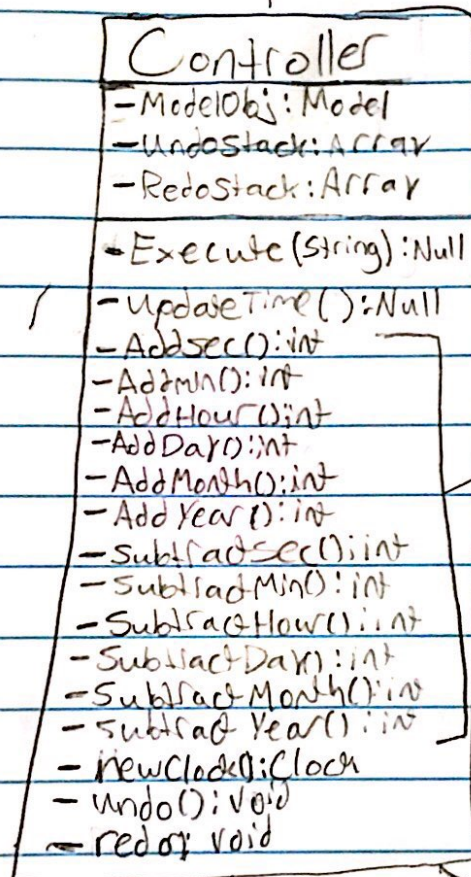 Controller
- ModelObj: Model
- UndoStack: Array
- RedoStack: Array
- Execute(String): Null
- UpdateTime(): Null
- AddSec(): int
- AddMin(): int
- AddHour(): int
- AddDay(): int
- AddMonth(): int
- AddYear(): int
- SubtractSec(): int
- SubtractMin(): int
- SubtractHour(): int
- SubtractDay(): int
- SubtractMonth(): int
- SubtractYear(): int
- newClock(): Clock
- undo(): void
- redo(): void